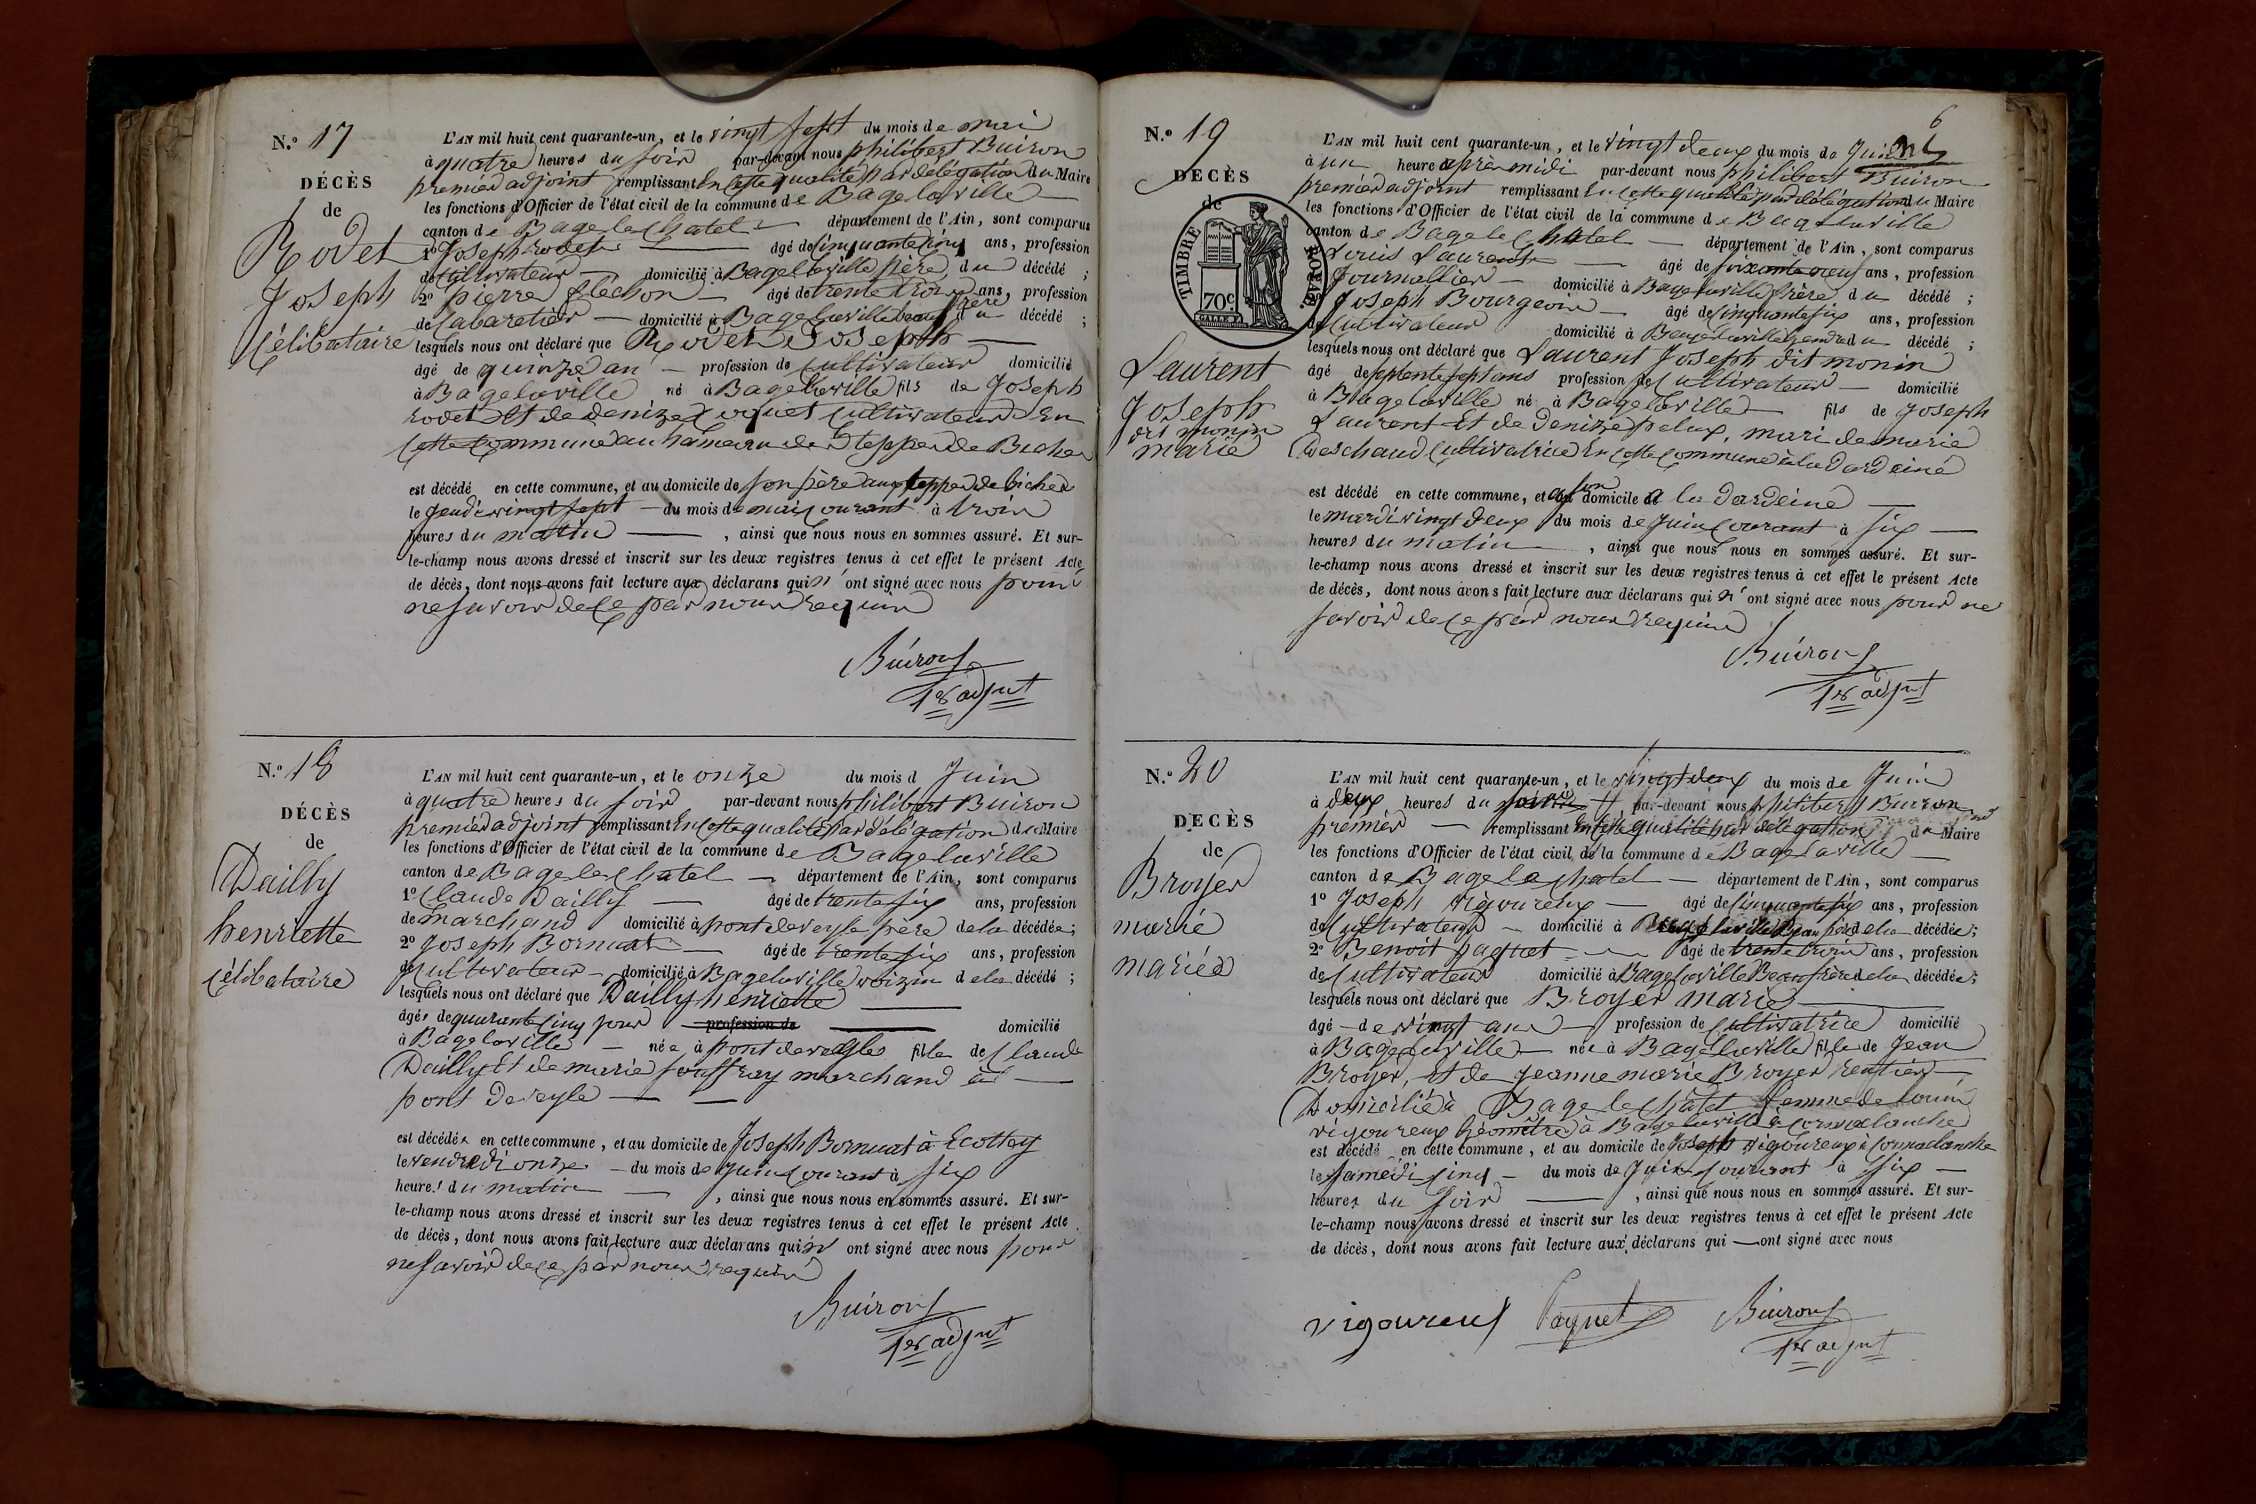 N.º 17
DÉCÈS
de
Rodet
Joseph
Célibataire
L'AN mil huit cent quarante-un, et le vingt sept du mois de mai
à quatre heures du soir par-devant nous philibert Buiron
premier adjoint remplissant en cette qualité par délégation du Maire
les fonctions d'Officier de l'état civil de la commune de Bagelaville
canton de Bage le Chatel département de l'Ain, sont comparus
1º Joseph rodet âgé de cinquante cinq ans, profession
de Cultivateur domicilié à Bagelaville père du décédé ;
2º pierre fléchon âgé de trente trois ans, profession
de Cabaretier domicilié à Bagelaville beau frère du décédé ;
lesquels nous ont déclaré que Rodet Joseph
âgé de quinze an profession de Cultivateur domicilié
à Bagelaville né à Bagelaville fils de Joseph
rodet Et de denize Cultivateur En
Cette Commune au hameau de
est décédé en cette commune, et au domicile de son père
le jeudi vingt sept du mois de mai courant à trois
heures du matin , ainsi que nous nous en sommes assuré. Et sur-
le-champ nous avons dressé et inscrit sur les deux registres tenus à cet effet le présent Acte
de décès, dont nous avons fait lecture aux déclarans qui n'ont signé avec nous pour
ne savoir de ce par nous requis
Buiron
1er adjnt
N.º 18
DÉCÈS
de
Dailly
henriette
Célibataire
L'AN mil huit cent quarante-un, et le onze du mois d Juin
à quatre heures du soir par-devant nous philibert Buiron
premier adjoint remplissant En cette qualité par délégation du Maire
les fonctions d'Officier de l'état civil de la commune de Bagelaville
canton de Bage le Chatel département de l'Ain, sont comparus
1º Claude Dailly âgé de trente six ans, profession
de marchand domicilié à pont de veyle père de la décédée ;
2º Joseph Bornuat âgé de trente six ans, profession
de Cultivateur domicilié à Bagelaville voizin de la décédé ;
lesquels nous ont déclaré que Dailly henriette
âgée de quarante cinq jour profession de domicilié
à Bagelaville née à pont de veyle fille de Claude
Dailly Et de marie marchand à
pont de veyle
est décédée en cette commune, et au domicile de Joseph Bornuat à Ecottey
le vendredi onze du mois de juin courant à six
heures du matin , ainsi que nous nous en sommes assuré. Et sur-
le-champ nous avons dressé et inscrit sur les deux registres tenus à cet effet le présent Acte
de décès, dont nous avons fait lecture aux déclarans qui n' ont signé avec nous pour
ne savoir de ce par nous requis
Buiron
1er adjnt
6
N.º 19
DÉCÈS
de
TIMBRE ROYAL
70c
Laurent
Joseph
dit monin
marié
L'AN mil huit cent quarante-un, et le vingt deux du mois de Juin
à un heure après midi par-devant nous philibert Buiron
premier adjoint remplissant En cette qualité par délégation du Maire
les fonctions d'Officier de l'état civil de la commune de Bagelaville
canton de Bage le Chatel département de l'Ain, sont comparus
Louis Laurent âgé de soixante neuf ans, profession
Journallier domicilié à Bagelaville frère du décédé ;
Joseph Bourgeois âgé de cinquante six ans, profession
de Cultivateur domicilié à Bagelaville gendre du décédé ;
lesquels nous ont déclaré que Laurent Joseph dit monin
âgé de septante sept ans profession de Cultivateur domicilié
à Bagelaville né à Bagelaville fils de Joseph
Laurent Et de Denize pelux, mari de marie
Deschaud Cultivatrice En cette commune à la dardeine
est décédé en cette commune, et à son domicile à la dardeine
le mardi vingt deux du mois de juin courant à six
heures du matin , ainsi que nous nous en sommes assuré. Et sur-
le-champ nous avons dressé et inscrit sur les deux registres tenus à cet effet le présent Acte
de décès, dont nous avons fait lecture aux déclarans qui n' ont signé avec nous pour ne
savoir de ce par nous requis
Buiron
1er adjnt
N.º 20
DÉCÈS
de
Broyer
marie
mariée
L'AN mil huit cent quarante-un, et le vingt deux du mois de Juin
à deux heures du soir par-devant nous philibert Buiron
premier remplissant en cette qualité par délégation du Maire
les fonctions d'Officier de l'état civil de la commune de Bagelaville
canton de Bage le Chatel département de l'Ain, sont comparus
1º Joseph vigoureux âgé de cinquante six ans, profession
de Cultivateur domicilié à Bagelaville Beau père de la décédée ;
2º Benoit paquet âgé de trente trois ans, profession
de Cultivateur domicilié à Bagelaville Beaufrère de la décédée ;
lesquels nous ont déclaré que Broyer marie
âgé de vingt ans profession de Cultivatrice domicilié
à Bagelaville née à Bagelaville fille de Jean
Broyer, Et de jeanne marie Broyer rentier
Domicilié à Bage le Châtel femme de louis
vigoureux Géomètre à Bagelaville à Cornaclanche
est décédé en cette commune, et au domicile de Joseph vigoureux à Cornaclanche
le samedi cinq du mois de Juin courant à six
heures du soir , ainsi que nous nous en sommes assuré. Et sur-
le-champ nous avons dressé et inscrit sur les deux registres tenus à cet effet le présent Acte
de décès, dont nous avons fait lecture aux déclarans qui ont signé avec nous
vigoureux Paquet Buiron
1er adjnt